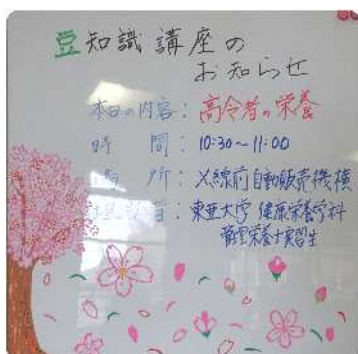 豆知識講座の
お知らせ
本日の内容：高令者の栄養
時　　間：10:30～11:00
場　　所：X線前自動販売機横
東亜大学 健康栄養学科
管理栄養士実習生